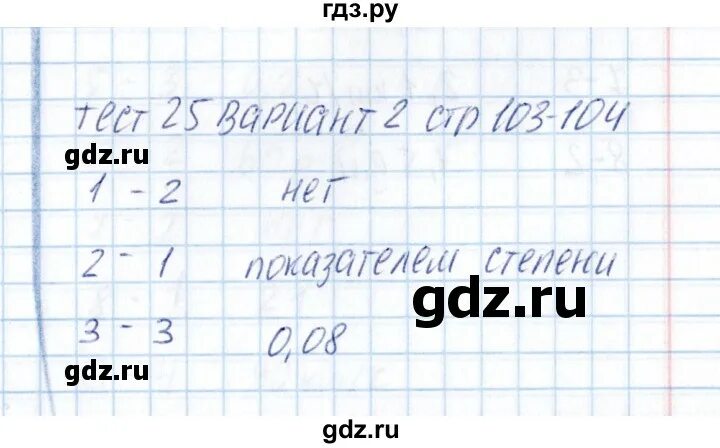 гдз.ру
тест 25 вариант 2 стр 103-104
gdz.ru
1 - 2 нет
2 - 1 показателем степени
gdz.ru
3 - 3 0,08
gdz.ru
gdz.ru